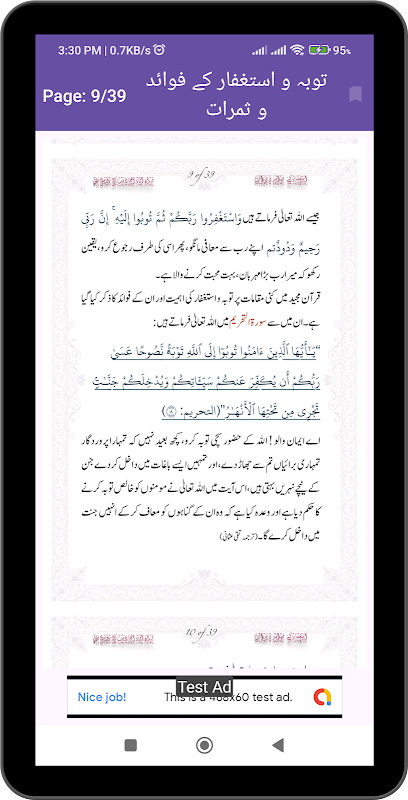 3:30 PM | 0.7KB/s
95%
Page: 9/39
توبہ و استغفار کے فوائد
و ثمرات
9 of 39
جیسے اللہ تعالیٰ فرماتے ہیں وَاسْتَغْفِرُوا رَبَّكُمْ ثُمَّ تُوبُوا إِلَيْهِ ۚ إِنَّ رَبِّي
رَحِيمٌ وَدُودٌ تم اپنے رب سے معافی مانگو، پھر اسی کی طرف رجوع کرو، یقین
رکھو کہ میرا رب بڑا مہربان، بہت محبت کرنے والا ہے۔
قرآن مجید میں کئی مقامات پر توبہ و استغفار کی اہمیت اور ان کے فوائد کا ذکر کیا گیا
ہے۔ ان میں سے سورۃ التحریم میں اللہ تعالیٰ فرماتے ہیں:
"يَـٰٓأَيُّهَا ٱلَّذِينَ ءَامَنُوا تُوبُوٓا إِلَى ٱللَّهِ تَوْبَةً نَّصُوحًا عَسَىٰ
رَبُّكُمْ أَن يُكَفِّرَ عَنكُمْ سَيِّـَٔاتِكُمْ وَيُدْخِلَكُمْ جَنَّـٰتٍ
تَجْرِى مِن تَحْتِهَا ٱلْأَنْهَـٰرُ" (التحریم: ۸)
اے ایمان والو! اللہ کے حضور سچی توبہ کرو، کچھ بعید نہیں کہ تمہارا پروردگار
تمہاری برائیاں تم سے جھاڑ دے، اور تمہیں ایسے باغات میں داخل کر دے جن
کے نیچے نہریں بہتی ہیں، اس آیت میں اللہ تعالیٰ نے مومنوں کو خالص توبہ کرنے
کا حکم دیا ہے اور وعدہ کیا ہے کہ وہ ان کے گناہوں کو معاف کر کے انہیں جنت
میں داخل کرے گا۔ (ترجمہ تقی عثمانی)
10 of 39
Test Ad
Nice job!
This is a 468x60 test ad.